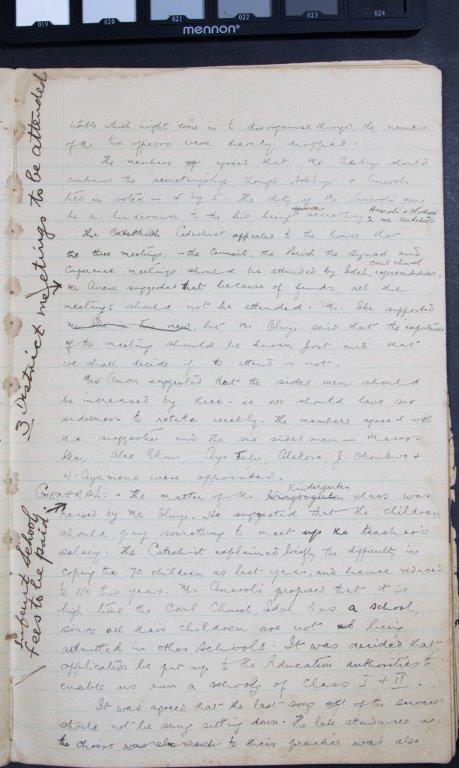 019 020 021 022 023 024
mennon
3 District meetings to be attended
Infant School
fees to be paid
trouble which might come in to disorganise things, the names
of the two officers were hereby
The members agreed that Mr should
continue the secretaryship though &
tied in votes — 5 by 5. The duty of Mr
be a hinderance to the his being secretary
The Catechist appealed to the house that
the three meetings, — the Council, the Parish, the Synod and
Conference meetings should be attended by Idal, representatives.
Mr suggested that because of funds, all the
meetings should not be attended. Mr. Ike supported
but Mr Oluji said that the importance
of the meeting should be known first and that
we shall decide if to attend or not.
Mrs Omon suggested that the sides men should
be increased by three — ie we should have six
sidesmen to rotate weekly. The members agreed with
the suggestion and the six sides men — Messrs
Ike, Alex Aye Alakoro, J. Okonkwo &
N. Ayamene were appointed.
GENERAL: - The matter of the Kindergarten class was
raised by Mr Oluji. He suggested that the children
should pay something to meet up the teacher's
salary. The Catechist explained briefly the difficulty in
coping the 70 children as last year, and hence reduced
to 40 this year. Mr proposed that it is
high time the Church, Idal has a school,
since all their children are not being
admitted in other schools. It was decided that
application be put up to the Education authorities to
enable us run a school of Class I & II.
It was agreed that the last song of the service
should not be sung sitting down. The late attendance of
the choirs to their practice was also